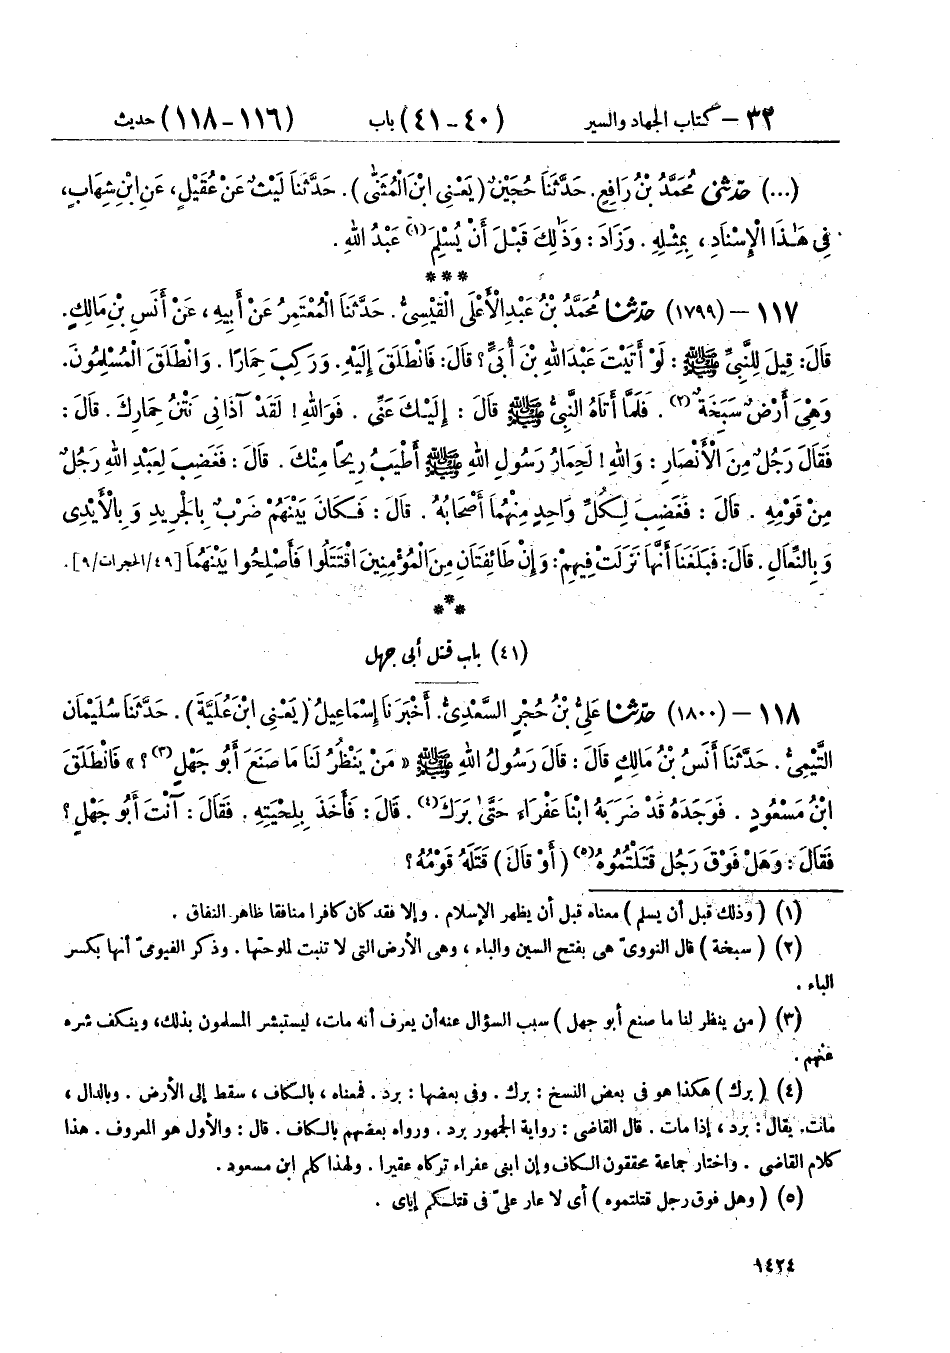 ٣٢ – كتاب الجهاد والسير (٤٠-٤١) باب (١١٦-١١٨) حديث
(...) حَدَّثَنِي مُحَمَّدُ بْنُ رَافِعٍ. حَدَّثَنَا حُجَيْنٌ (يَعْنِي ابْنَ الْمُثَنَّى). حَدَّثَنَا لَيْثٌ عَنْ عُقَيْلٍ، عَنِ ابْنِ شِهَابٍ،
فِي هَٰذَا الْإِسْنَادِ، بِمِثْلِهِ. وَزَادَ: وَذَٰلِكَ قَبْلَ أَنْ يُسْلِمَ(١) عَبْدُ اللهِ.
***
١١٧ – (١٧٩٩) حَدَّثَنَا مُحَمَّدُ بْنُ عَبْدِالْأَعْلَى الْقَيْسِيُّ. حَدَّثَنَا الْمُعْتَمِرُ عَنْ أَبِيهِ، عَنْ أَنَسِ بْنِ مَالِكٍ.
قَالَ: قِيلَ لِلنَّبِيِّ ﷺ: لَوْ أَتَيْتَ عَبْدَاللهِ بْنَ أُبَيٍّ؟ قَالَ: فَانْطَلَقَ إِلَيْهِ. وَرَكِبَ حِمَارًا. وَانْطَلَقَ الْمُسْلِمُونَ.
وَهِيَ أَرْضٌ سَبَخَةٌ(٢). فَلَمَّا أَتَاهُ النَّبِيُّ ﷺ قَالَ: إِلَيْكَ عَنِّي. فَوَاللهِ! لَقَدْ آذَانِي نَتْنُ حِمَارِكَ. قَالَ:
فَقَالَ رَجُلٌ مِنَ الْأَنْصَارِ: وَاللهِ! لَحِمَارُ رَسُولِ اللهِ ﷺ أَطْيَبُ رِيحًا مِنْكَ. قَالَ: فَغَضِبَ لِعَبْدِ اللهِ رَجُلٌ
مِنْ قَوْمِهِ. قَالَ: فَغَضِبَ لِكُلِّ وَاحِدٍ مِنْهُمَا أَصْحَابُهُ. قَالَ: فَكَانَ بَيْنَهُمْ ضَرْبٌ بِالْجَرِيدِ وَبِالْأَيْدِي
وَبِالنِّعَالِ. قَالَ: فَبَلَغَنَا أَنَّهَا نَزَلَتْ فِيهِمْ: وَإِنْ طَائِفَتَانِ مِنَ الْمُؤْمِنِينَ اقْتَتَلُوا فَأَصْلِحُوا بَيْنَهُمَا [٤٩/الحجرات/٩].
***
(٤١) باب قتل أبي جهل
١١٨ – (١٨٠٠) حَدَّثَنَا عَلِيُّ بْنُ حُجْرٍ السَّعْدِيُّ. أَخْبَرَنَا إِسْمَاعِيلُ (يَعْنِي ابْنَ عُلَيَّةَ). حَدَّثَنَا سُلَيْمَانُ
التَّيْمِيُّ. حَدَّثَنَا أَنَسُ بْنُ مَالِكٍ قَالَ: قَالَ رَسُولُ اللهِ ﷺ «مَنْ يَنْظُرُ لَنَا مَا صَنَعَ أَبُو جَهْلٍ(٣)؟» فَانْطَلَقَ
ابْنُ مَسْعُودٍ. فَوَجَدَهُ قَدْ ضَرَبَهُ ابْنَا عَفْرَاءَ حَتَّىٰ بَرَكَ(٤). قَالَ: فَأَخَذَ بِلِحْيَتِهِ. فَقَالَ: آنْتَ أَبُو جَهْلٍ؟
فَقَالَ: وَهَلْ فَوْقَ رَجُلٍ قَتَلْتُمُوهُ(٥) (أَوْ قَالَ) قَتَلَهُ قَوْمُهُ؟
(١) (وذلك قبل أن يسلم) معناه قبل أن يظهر الإسلام. وإلا فقد كان كافرا منافقا ظاهر النفاق.
(٢) (سبخة) قال النوويّ هي بفتح السين والباء، وهي الأرض التي لا تنبت لملوحتها. وذكر الفيوميّ أنها بكسر
الباء.
(٣) (من ينظر لنا ما صنع أبو جهل) سبب السؤال عنه أن يعرف أنه مات، ليستبشر المسلمون بذلك، وينكف شره
عنهم.
(٤) (برك) هكذا هو في بعض النسخ: برك. وفي بعضها: برد. فمعناه، بالكاف، سقط إلى الأرض. وبالدال،
مات. يقال: برد، إذا مات. قال القاضي: رواية الجمهور برد. ورواه بعضهم بالكاف. قال: والأول هو المعروف. هذا
كلام القاضي. واختار جماعة محققون الكاف وإن ابني عفراء تركاه عقيرا. ولهذا كلم ابن مسعود.
(٥) (وهل فوق رجل قتلتموه) أي لا عار عليّ في قتلكم إياي.
١٤٢٤